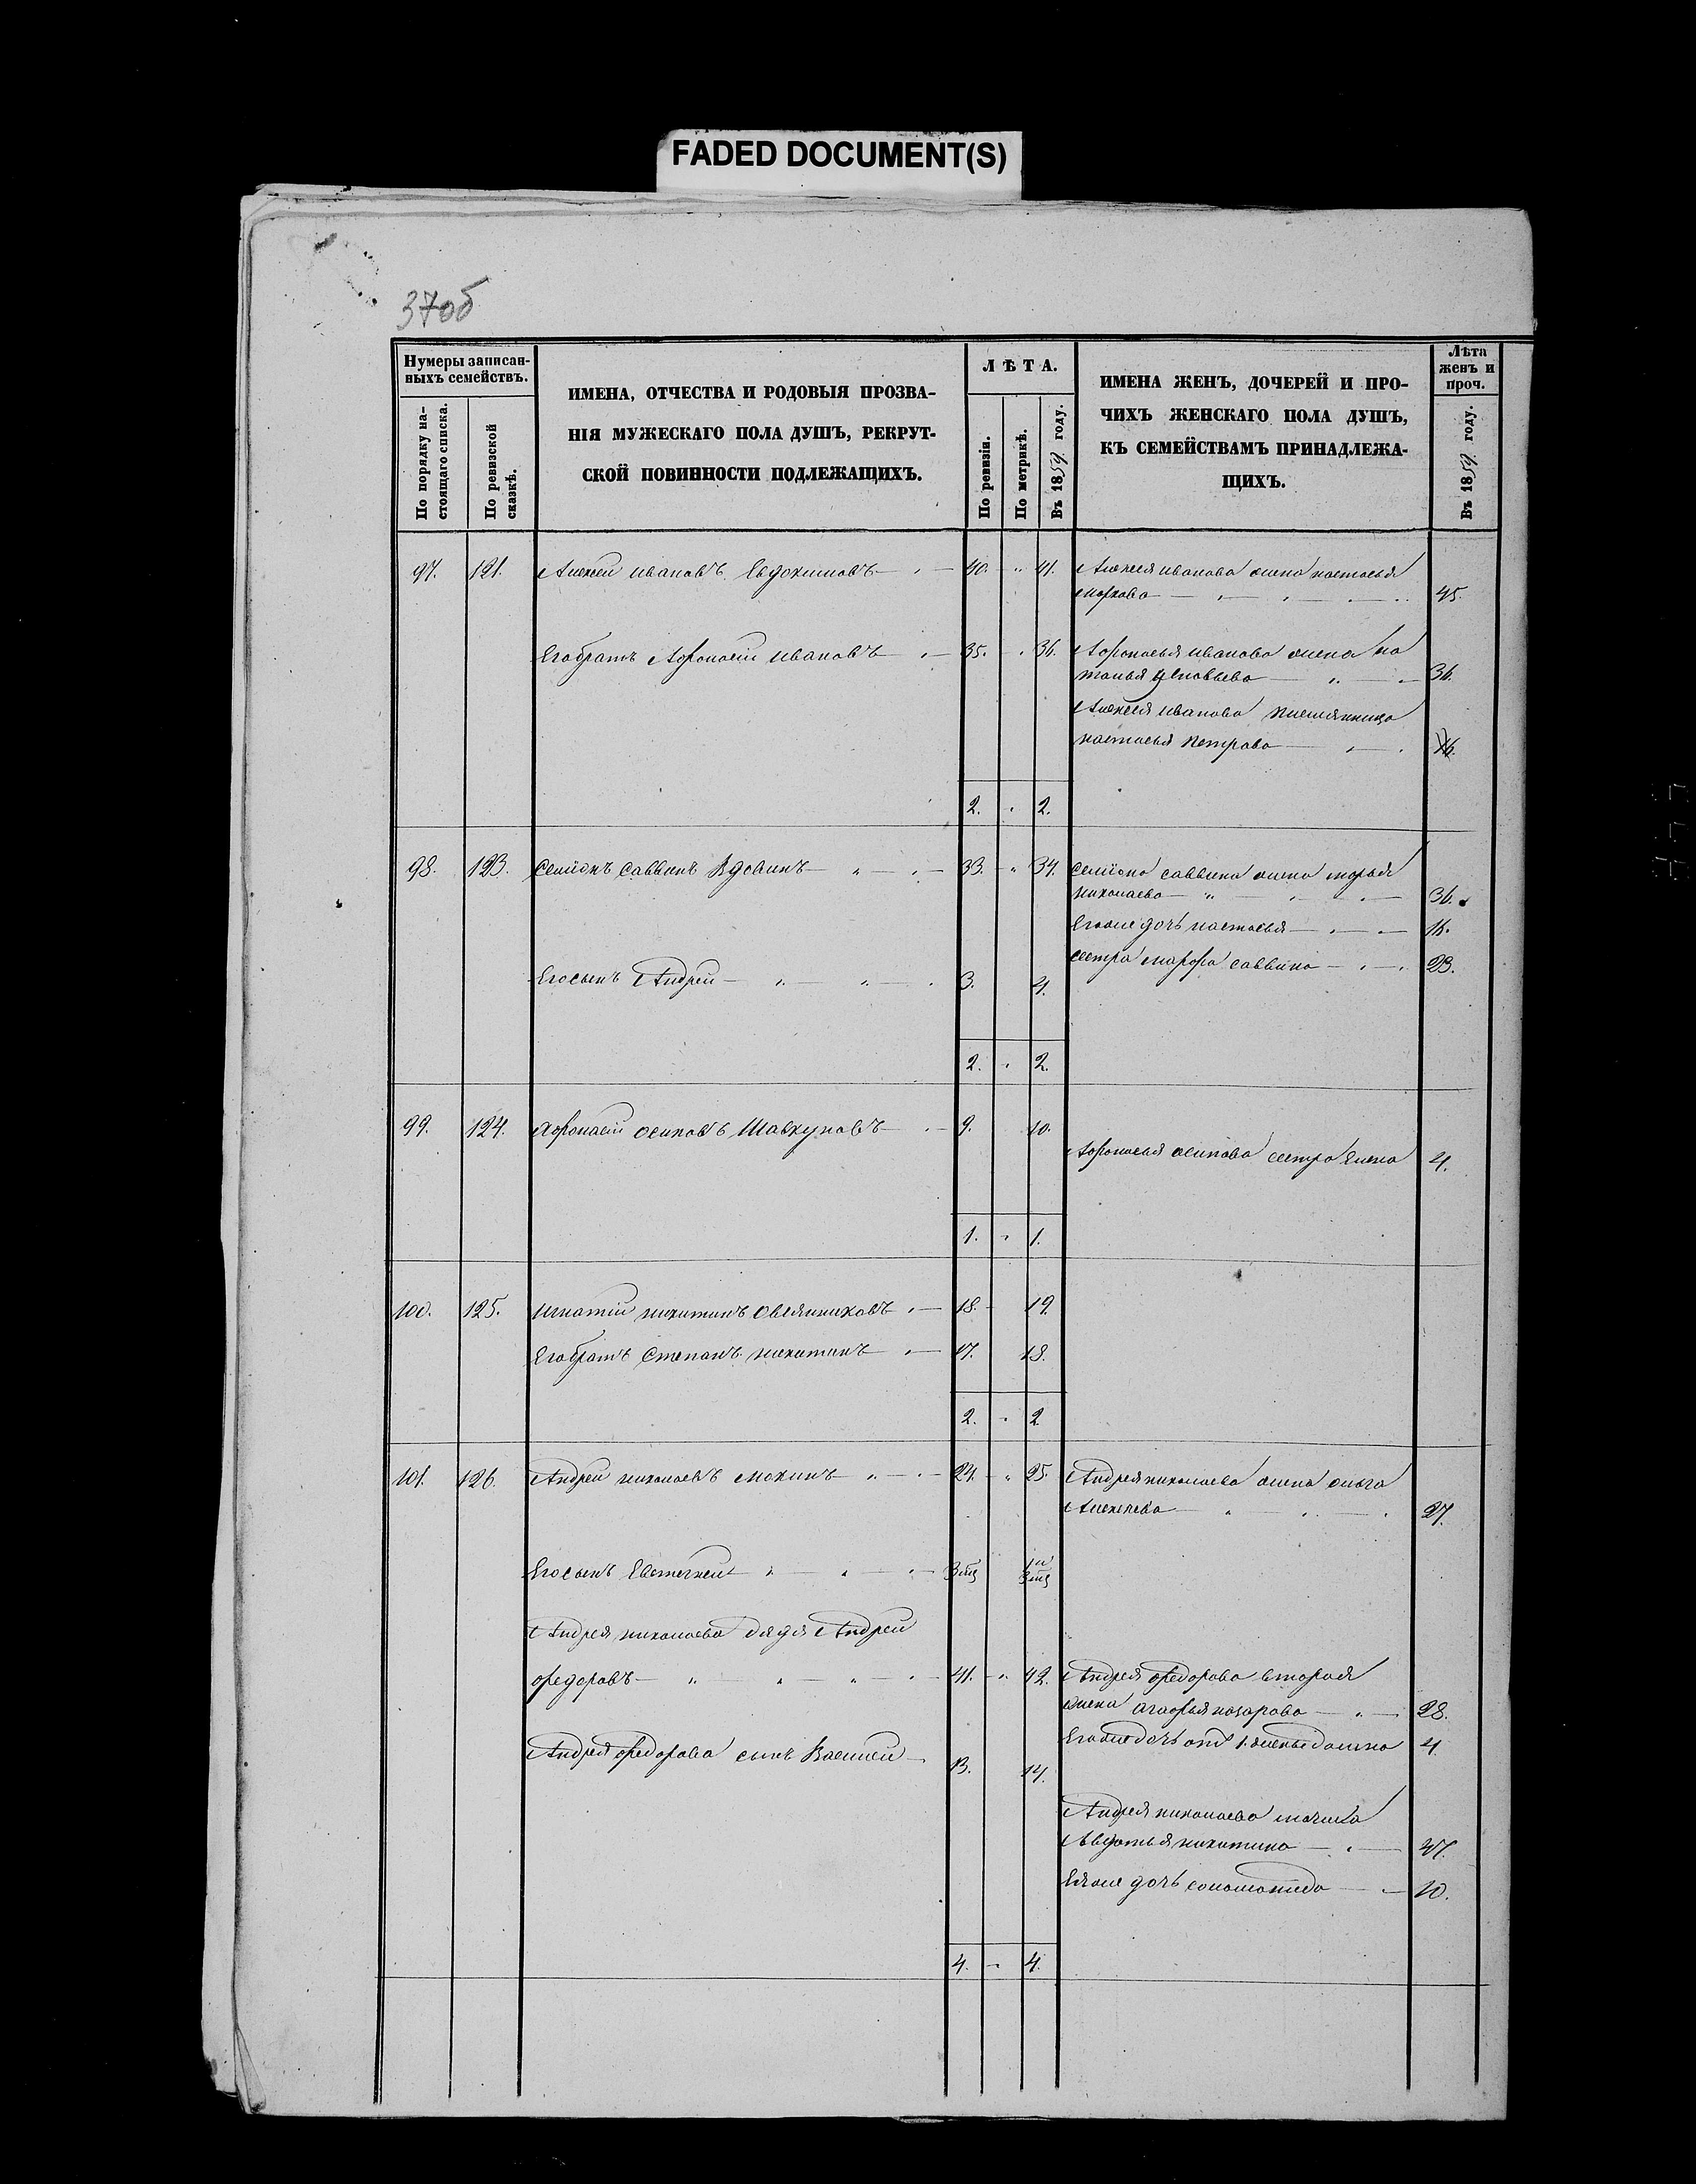 FADED DOCUMENT(S)
37об
Нумеры записан-
ныхъ семействъ.
По порядку на-
стоящаго списка.
По ревизской
сказкѣ.
ИМЕНА, ОТЧЕСТВА И РОДОВЫЯ ПРОЗВА-
НІЯ МУЖЕСКАГО ПОЛА ДУШЪ, РЕКРУТ-
СКОЙ ПОВИННОСТИ ПОДЛЕЖАЩИХЪ.
ЛѢТА.
По ревизіи.
По метрикѣ.
Въ 1859 году.
ИМЕНА ЖЕНЪ, ДОЧЕРЕЙ И ПРО-
ЧИХЪ ЖЕНСКАГО ПОЛА ДУШЪ,
КЪ СЕМЕЙСТВАМЪ ПРИНАДЛЕЖА-
ЩИХЪ.
Лѣта
женъ и
проч.
Въ 1859 году.
97. 121. Алексей ивановъ Евдокимовъ — 40. " 41. Алексея иванова жена настасья
маркова — 45.
Егобратъ Афонасій ивановъ — 35. " 36. Афонасья иванова жена на
талья — 36.
Алексея иванова племянница
настасья петрова —
2. " 2.
98. 123. Семіонъ саввинъ Вдовинъ — 33. " 34. Семіона саввина жена марья
николаева — 36.
Егоже дочь настасья — 16.
сестра марфа саввина — 23.
Егосынъ Андрей — 3. 4.
2. " 2.
99. 124. Афонасій осиповъ Шавкуновъ — 9. 10.
Афонасья осипова сестра Елена 4.
1. " 1.
100. 125. игнатій никитинъ Овсянниковъ — 18. 19.
Егобратъ Степанъ никитинъ — 17. 18.
2. " 2
101. 126. Андрей николаевъ мокинъ — 24. " 25. Андрея николаева жена ольга
Алексеева — 27.
Егосынъ Евстегней — 3 мц 1 и
3 мц
Андрея николаева дядя Андрей
федоровъ — 41. " 42. Андрея федорова вторая
жена агафья назарова — 28.
Егоже дочь отъ 1. жены домна 4.
Андрея федорова сынъ Василей — 13. 14.
Андрея николаева мачиха
Авдотья никитина — 47.
Еяже дочь соломонида — 10.
4. " 4.